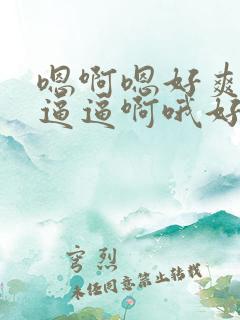 嗯啊嗯好爽
逼逼啊哦好
穹烈
未经同意禁止转载